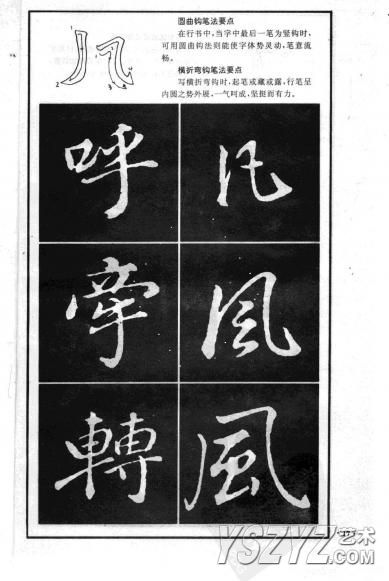 圆曲钩笔法要点
在行书中,当字中最后一笔为竖钩时,
可用圆曲钩法则能使字体势灵动,笔意流
畅。
横折弯钩笔法要点
写横折弯钩时,起笔或藏或露,行笔呈
内圆之势外展,一气呵成,坚挺而有力。
1
2
1
2
3
呼 凡
牵 風
轉 風
YSZYZ艺术
.COM